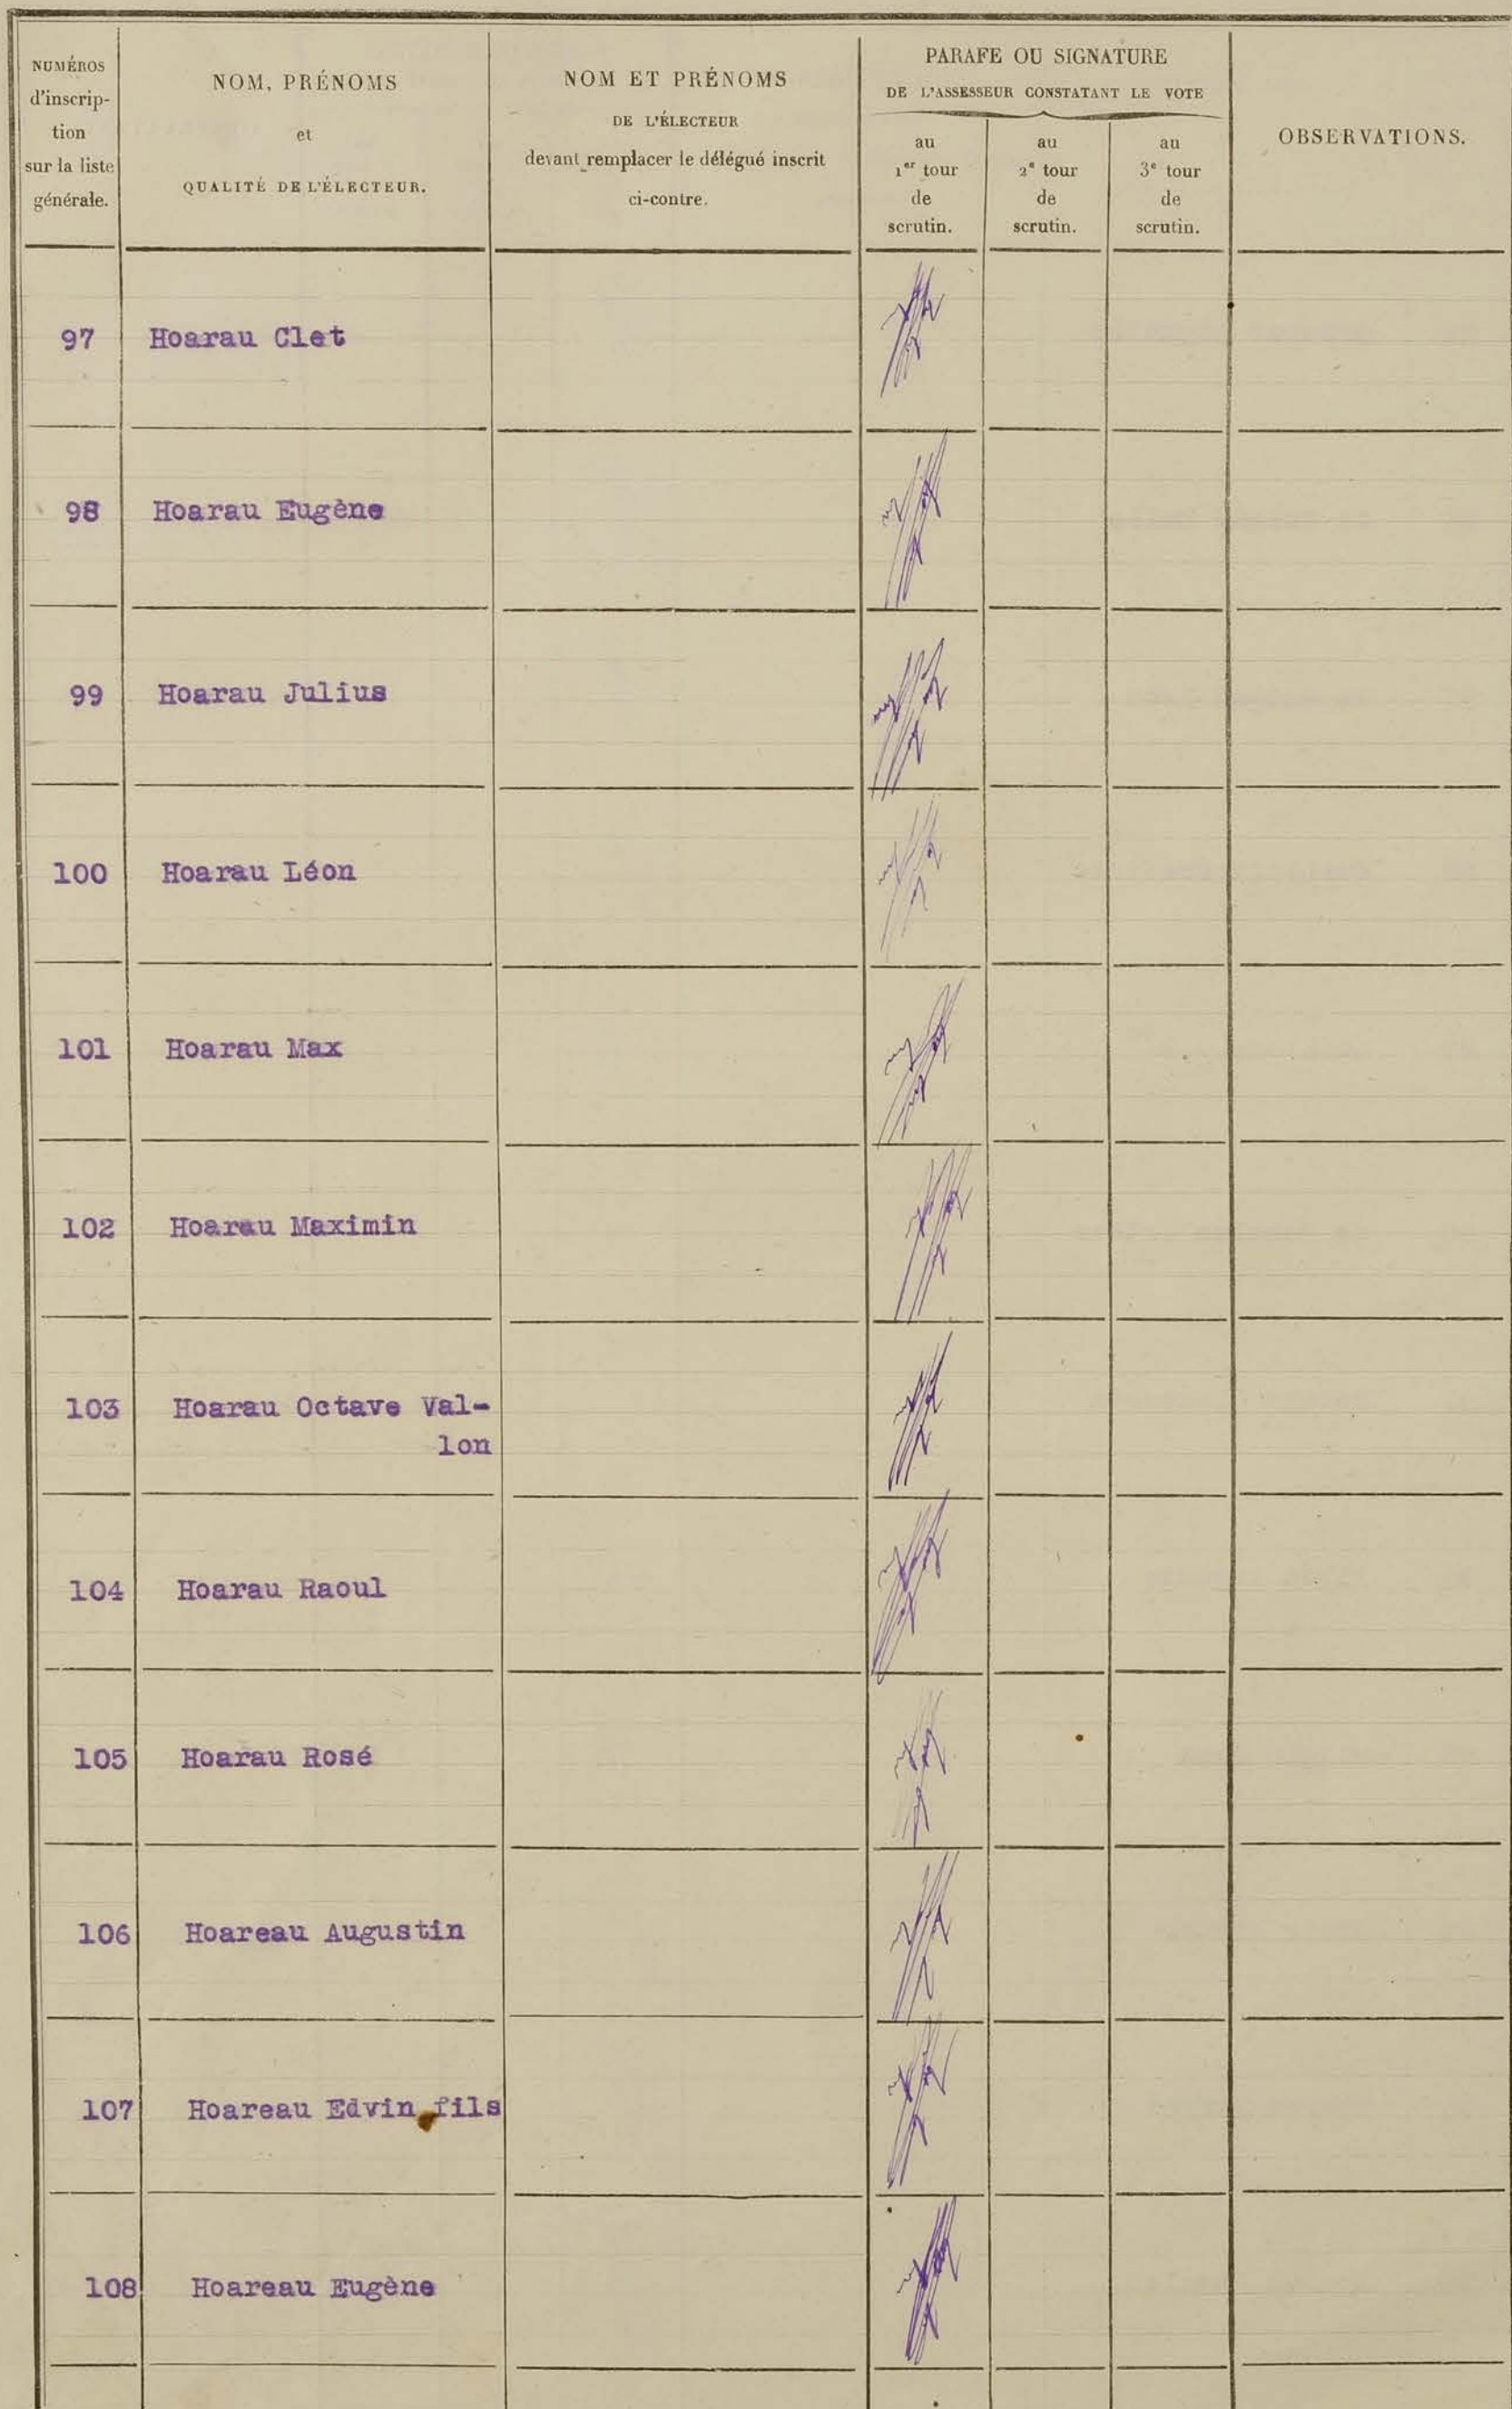 NUMÉROS
d'inscrip-
tion
sur la liste
générale.
NOM, PRÉNOMS
et
QUALITÉ DE L'ÉLECTEUR.
NOM ET PRÉNOMS
DE L'ÉLECTEUR
devant remplacer le délégué inscrit
ci-contre.
PARAFE OU SIGNATURE
DE L'ASSESSEUR CONSTATANT LE VOTE
au
1er tour
de
scrutin.
au
2e tour
de
scrutin.
au
3e tour
de
scrutin.
OBSERVATIONS.
97 Hoarau Clet
98 Hoarau Eugène
99 Hoarau Julius
100 Hoarau Léon
101 Hoarau Max
102 Hoarau Maximin
103 Hoarau Octave Val-
lon
104 Hoarau Raoul
105 Hoarau Rosé
106 Hoareau Augustin
107 Hoareau Edvin fils
108 Hoareau Eugène